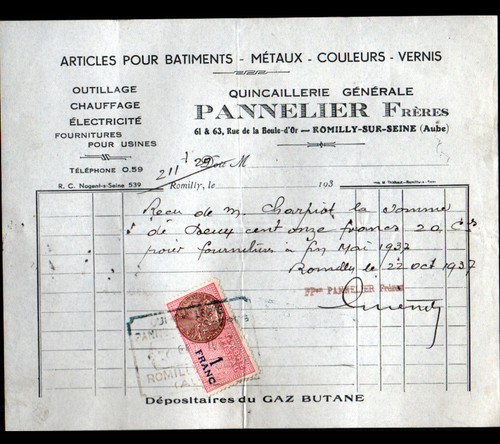 ARTICLES POUR BATIMENTS - MÉTAUX - COULEURS - VERNIS
OUTILLAGE
CHAUFFAGE
ÉLECTRICITÉ
FOURNITURES
POUR USINES
TÉLÉPHONE 0.59
R. C. Nogent-s-Seine 539
QUINCAILLERIE GÉNÉRALE
PANNELIER FRÈRES
61 & 63, Rue de la Boule-d'Or — ROMILLY-SUR-SEINE (Aube)
Doit M
Romilly, le 193
Reçu de M. Charpiot la somme
de Deux cent onze francs 20 Cts
pour fournitures à fin Mai 1937
Romilly le 22 oct 1937
PANNELIER Frères
1
FRANC
ROMILLY
Dépositaires du GAZ BUTANE